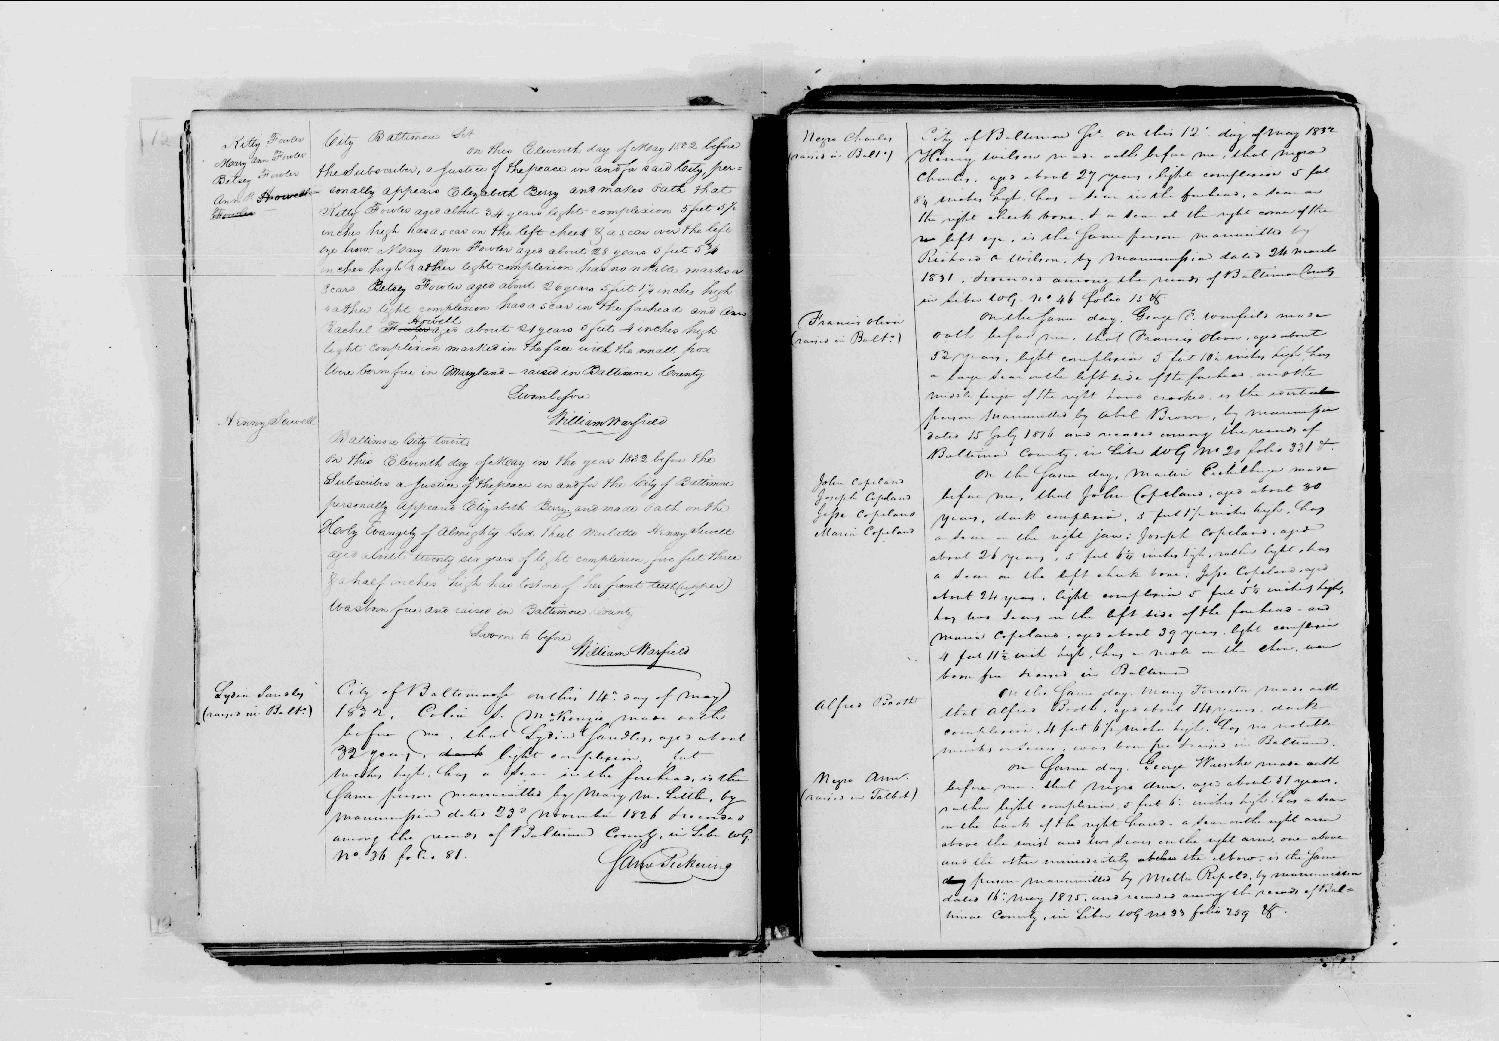 Kitty Fowler
Mary Ann Fowler
Betsey Fowler
Ann R Howell
Fowler
City Baltimore Sct
on this Eleventh day of May 1832 before
the subscriber, a Justice of the peace in and for said City, per=
sonally appears Elizabeth Berry and makes oath that
Kitty Fowler aged about 34 years light complexion 5 feet 3½
inches high has a scar on the left cheek & a scar over the left
eye brow. Mary Ann Fowler aged about 28 years 5 feet 5¾
inches high rather light complexion has no notable marks or
scars Betsey Fowler aged about 26 years 5 feet 1½ inches high
rather light complexion has a scar in the forehead and Ann
Rachel Fowler Howell aged about 21 years 5 feet 4 inches high
light complexion marked in the face with the small pox
Were born free in Maryland – raised in Baltimore County
Sworn before
William Warfield
Hinny Sewell
Baltimore City to wit,
On this Eleventh day of May in the year 1832 before the
Subscriber a Justice of the peace in and for the City of Baltimore
personally appears Elizabeth Berry and made oath on the
Holy Evangely of Almighty God that Mulatto Hinny Sewell
aged about twenty six years of light complexion, five feet three
& a half inches high has lost one of her front teeth (upper)
Was born free and raised in Baltimore County
Sworn to before
William Warfield
Lydia Sandles
(raised in Balto.)
City of Baltimore Ss on this 14th day of May
1832, Colin S. McKenzie made oath
before me, that Lydia Sandles, aged about
32 years, dark light complexion, feet
inches high, has a scar in the forehead, is the
same person manumitted by Mary M. Little, by
manumission dated 23d November 1826 & recorded
among the records of Baltimore County, in Liber WG
No 36 folio 81.
James Pickering
Negro Charles
(raised in Balto.)
City of Baltimore Ss. on this 12th day of May 1832
Henry Wilson made oath before me, that negro
Charles, aged about 27 years, light complexion 5 feet
8½ inches high, has a scar in the forehead, a scar on
the right cheek bone, & a scar at the right corner of the
left eye, is the same person manumitted by
Richard A Wilson, by manumission dated 24 March
1831, & recorded among the records of Baltimore County
in Liber WG No 46 folio 13 &c.
Francis Oliver
(raised in Balto.)
On the same day, George made
oath before me, that Francis Oliver, aged about
52 years, light complexion 5 feet 10½ inches high, has
a large scar on the left side of the forehead and the
middle finger of the right hand crooked, is the identical
person manumitted by Abel Brown, by manumission
dated 15 July 1816 and recorded among the records of
Baltimore County, in Liber WG No 20 folio 331 &c.
John Copeland
Joseph Copeland
Jesse Copeland
Maria Copeland
On the same day, Martin made
before me, that John Copeland, aged about 30
years, dark complexion, 5 feet 1½ inches high, has
a scar on the right jaw; Joseph Copeland, aged
about 26 years, 5 feet 6½ inches high, rather light, has
a scar on the left cheek bone; Jesse Copeland, aged
about 24 years, light complexion 5 feet 5½ inches high,
has two scars on the left side of the forehead and
Maria Copeland, aged about 39 years, light complexion
4 feet 11½ inch high, has a mole on the chin, were
born free & raised in Baltimore
Alfred Booth
On the same day, Mary Forrester made oath
that Alfred Booth, aged about 14 years, dark
complexion, 4 feet 6½ inches high, has no notable
marks or scars, was born free & raised in Baltimore.
Negro Ann
(raised in Talbot)
On same day, George Waesche made oath
before me, that Negro Ann, aged about 31 years,
rather light complexion 5 feet 6 inches high, has a scar
on the back of the right hand, a scar on the right arm
above the wrist and two scars on the right arm, one above
and the other immediately above the elbow, is the same
person manumitted by Metta Repold, by manumission
dated 16th May 1825, and recorded among the records of Bal=
timore County, in Liber WG No 33 folio 259 &c.